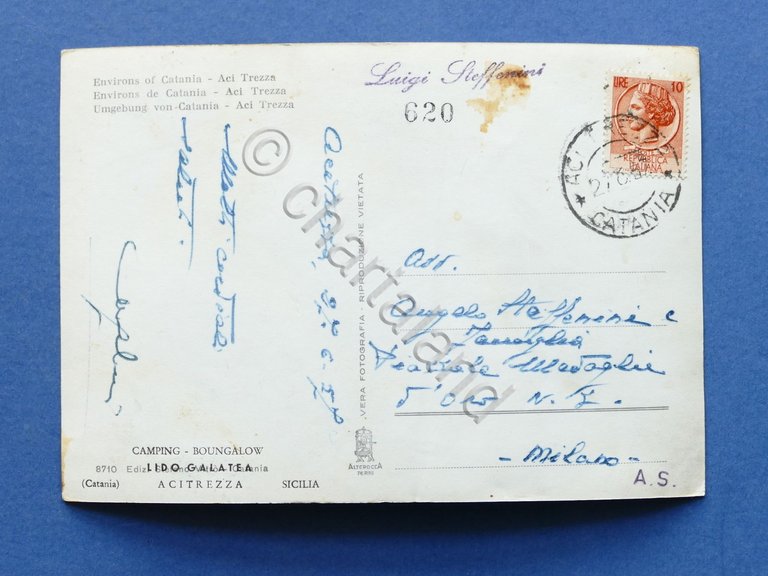 Environs of Catania - Aci Trezza
Environs de Catania - Aci Trezza
Umgebung von Catania - Aci Trezza
Luigi Steffenini
620
LIRE 10
REPUBBLICA
ITALIANA
ACI TREZZA
CATANIA
Acitrezza,
Molti cordiali
saluti.
VERA FOTOGRAFIA - RIPRODUZIONE VIETATA
Angelo Steffenini e
Famiglia
Piazzale Medaglie
d'Oro N. 1.
- Milano -
CAMPING - BOUNGALOW
8710 Ediz.
LIDO GALATEA
Catania
(Catania) ACITREZZA SICILIA
ALTEROCCA
TERNI
A.S.
© chartaland